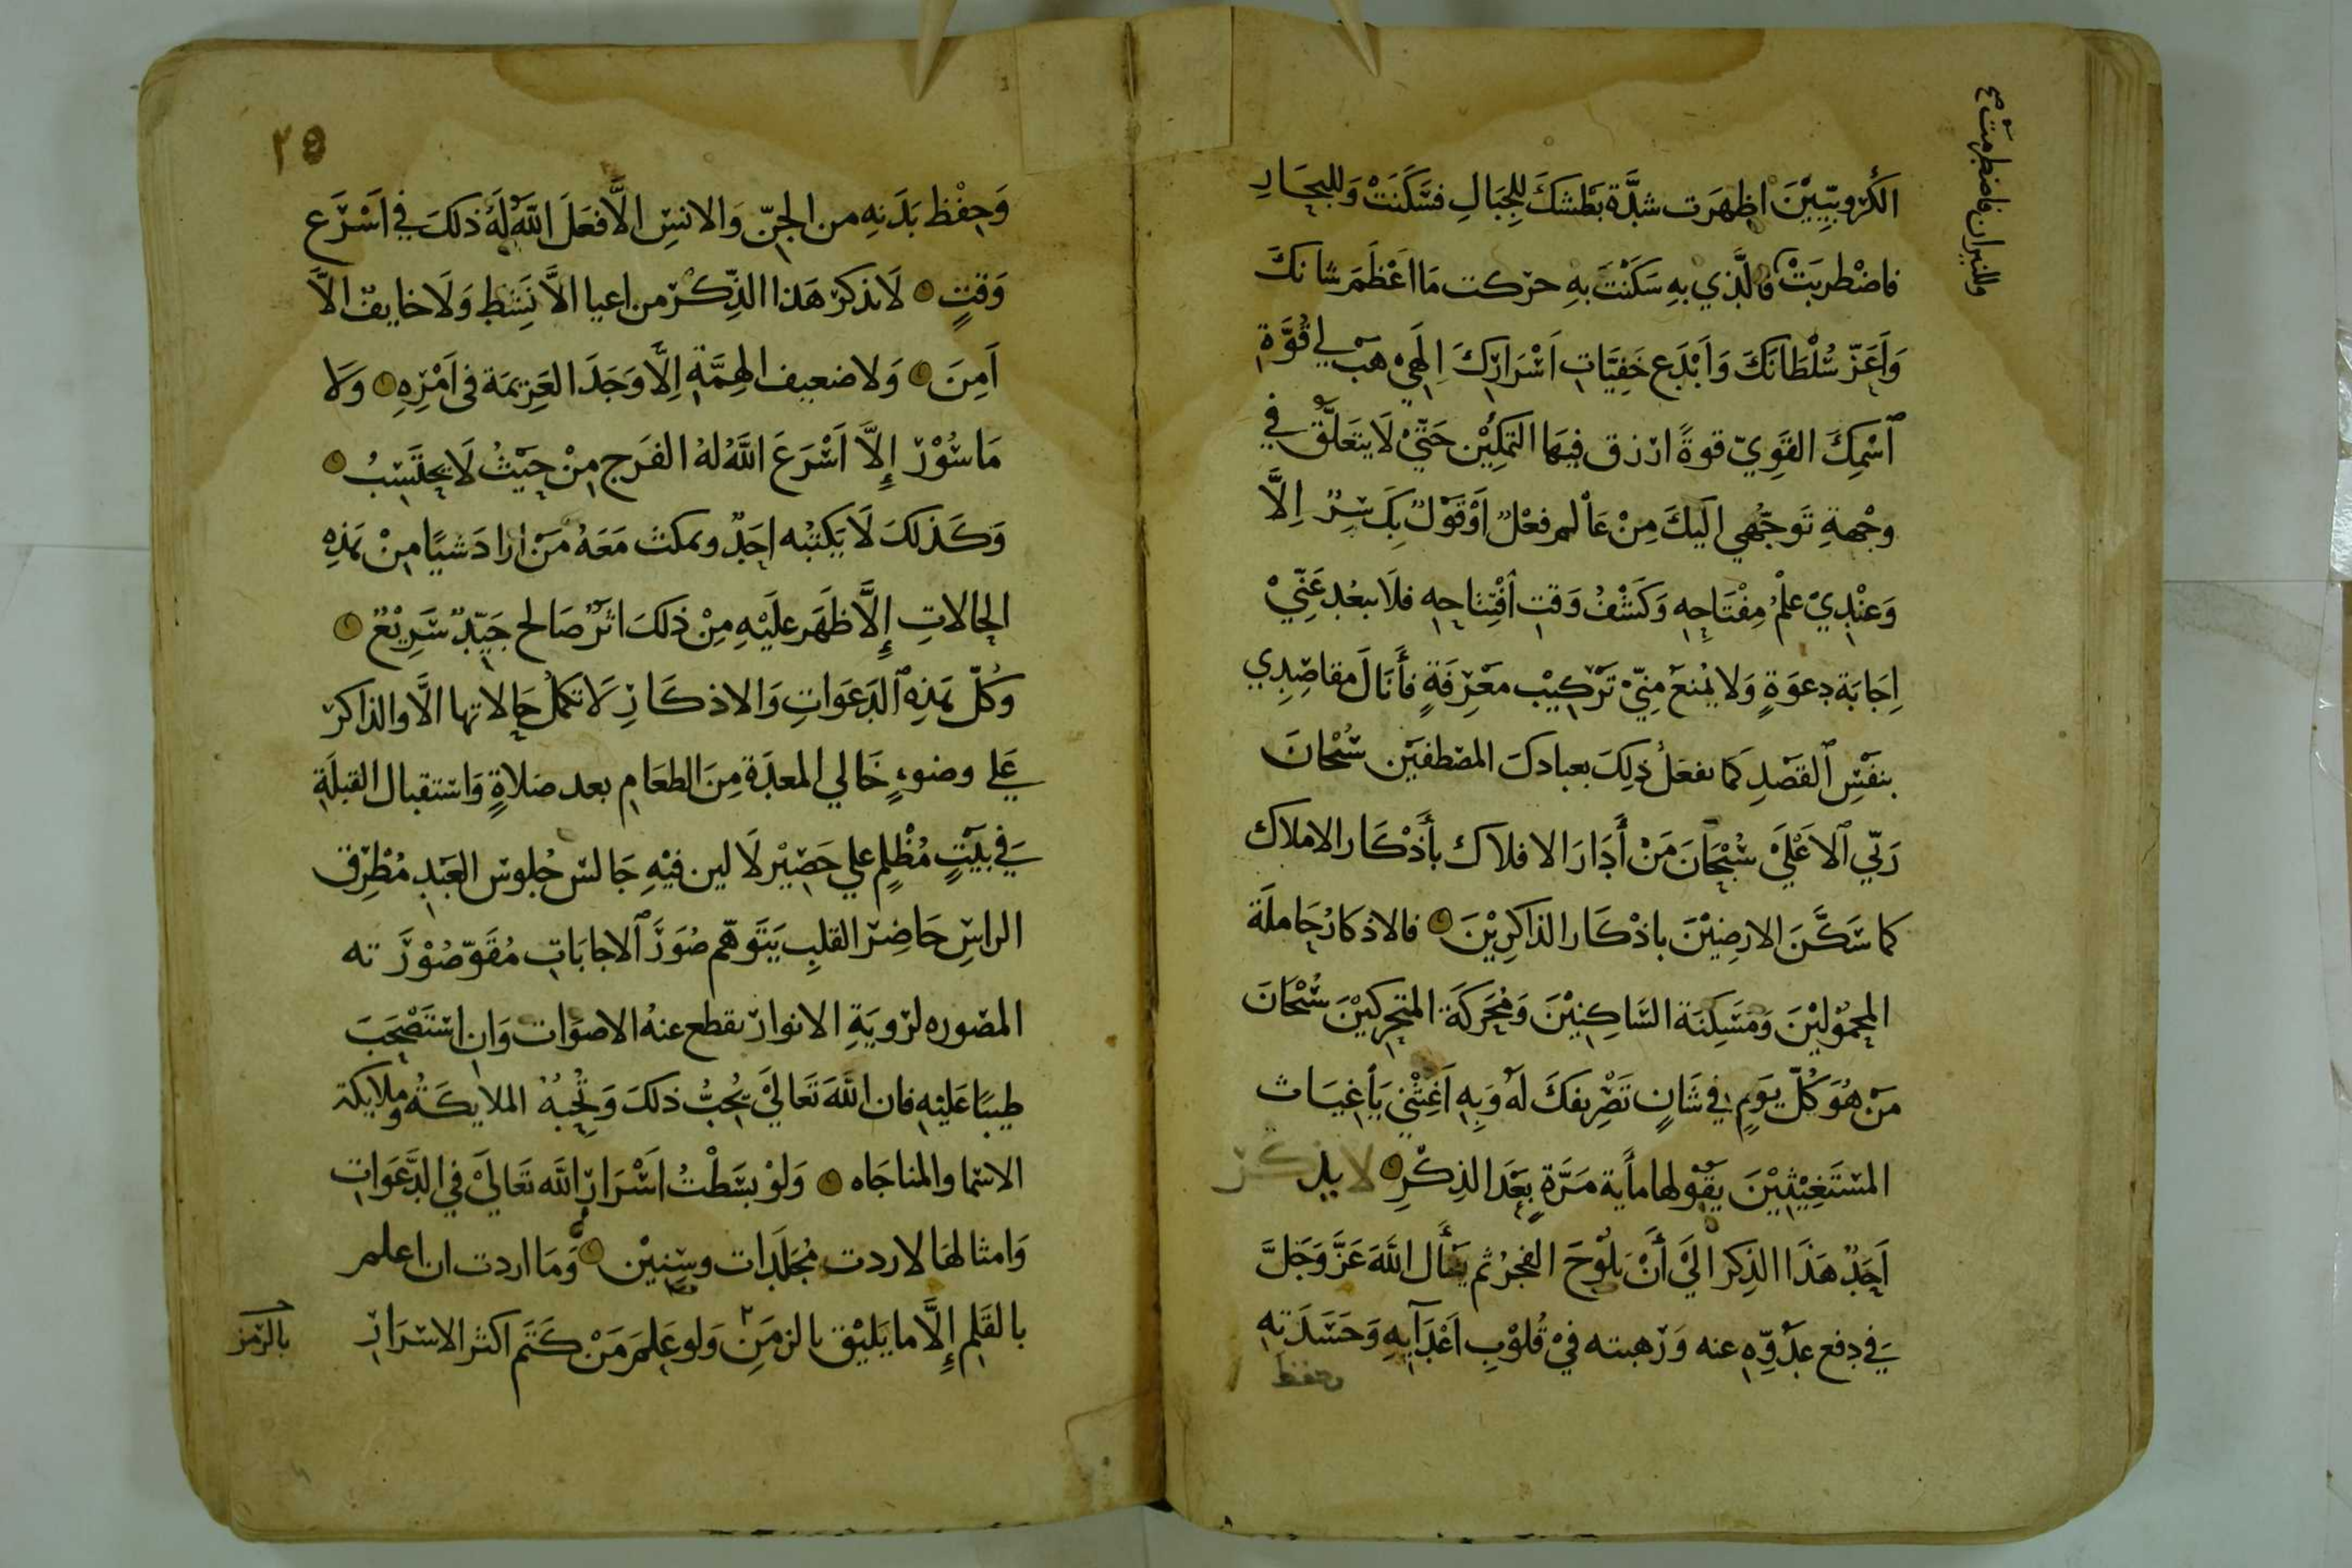 الكروبيّين اظهرت شدّة بطشك للجبال فسكنت وللبحار
فاضطربت فالّذي به سكنت به حركت ما اعظم شانك
وللنيران فاضطرمت صح
واعزّ سلطانك وابدع خفيّات اسرارك الهي هب لي قوّة
اسمك القويّ قوة ارزق فيها التمكين حتّي لا يتعلّق في
وجهة توجّهي اليك من عالم فعل او قول بك سرّ الّا
وعندي علم مفتاحه وكشف وقت افتتاحه فلا يبعد عنّي
اجابة دعوة ولا يمنع منّي تركيب معرفة فأنال مقاصدي
بنفس القصد كما تفعل ذلك بعبادك المصطفين سبحان
ربّي الاعلي سبحان من أدار الافلاك بأذكار الاملاك
كما سكّن الارضين باذكار الذاكرين فالاذكار حاملة
المحمولين ومسكنة الساكنين ومحركة المتحركين سبحان
من هو كلّ يوم في شان تصريفك له وبه اغثني يا غياث
المستغيثين يقولها مأية مرّة بعد الذكر لا يذكر
احد هذا الذكر الي أن يلوح الفجر ثم يسأل الله عزّ وجلّ
في دفع عدوّه عنه ورهبته في قلوب اعدآيه وحسدته
وحفظ
٢٥
وحفظ بدنه من الجنّ والانس الّا فعل اللّه له ذلك في اسرع
وقت لا يذكر هذا الذّكر من اعيا الّا نشط ولا خايف الّا
امن ولا ضعيف الهمّة الّا وجد العزيمة في امره ولا
ماسور إلّا اسرع اللّه له الفرج من حيث لا يحتسب
وكذلك لا يكتبه احد ويمكث معه من اراد شيا من هذه
الحالات إلّا ظهر عليه من ذلك اثر صالح جيّد سريع
وكلّ هذه الدعوات والاذكار لا تكمل حالاتها الّا والذاكر
علي وضوء خالي المعدة من الطعام بعد صلاة واستقبال القبلة
في بيت مظلم علي حصير لا لين فيه جالس جلوس العبد مطرق
الراس حاضر القلب يتوهّم صور الاجابات مقوّ صورته
المصوره لروية الانوار يقطع عنه الاصوات وان استصحب
طيبا عليه فان اللّه تعالي يحبّ ذلك وتحبه الملايكة وملايكة
الاسما والمناجاه ولو بسطت اسرار اللّه تعالي في الدّعوات
وامثالها لاردت مجلدات وسنين وما اردت ان اعلم
بالقلم إلّا ما يليق بالزمن ولو علم من كتم اكثر الاسرار
بالرمز